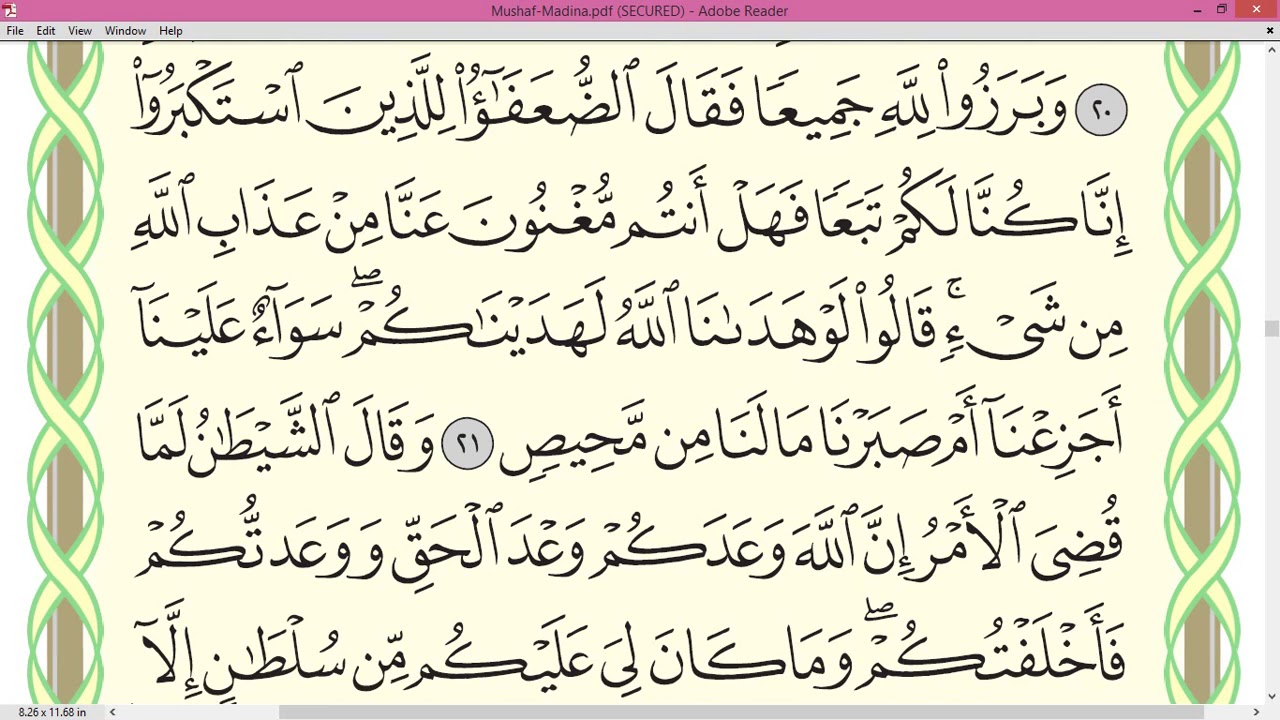 Mushaf-Madina.pdf (SECURED) - Adobe Reader
File Edit View Window Help
٢٠ وَبَرَزُوا۟ لِلَّهِ جَمِيعًا فَقَالَ ٱلضُّعَفَـٰٓؤُا۟ لِلَّذِينَ ٱسْتَكْبَرُوٓا۟
إِنَّا كُنَّا لَكُمْ تَبَعًا فَهَلْ أَنتُم مُّغْنُونَ عَنَّا مِنْ عَذَابِ ٱللَّهِ
مِن شَىْءٍ ۚ قَالُوا۟ لَوْ هَدَىٰنَا ٱللَّهُ لَهَدَيْنَـٰكُمْ ۖ سَوَآءٌ عَلَيْنَآ
أَجَزِعْنَآ أَمْ صَبَرْنَا مَا لَنَا مِن مَّحِيصٍ ٢١ وَقَالَ ٱلشَّيْطَـٰنُ لَمَّا
قُضِىَ ٱلْأَمْرُ إِنَّ ٱللَّهَ وَعَدَكُمْ وَعْدَ ٱلْحَقِّ وَوَعَدتُّكُمْ
فَأَخْلَفْتُكُمْ ۖ وَمَا كَانَ لِىَ عَلَيْكُم مِّن سُلْطَـٰنٍ إِلَّآ
8.26 x 11.68 in